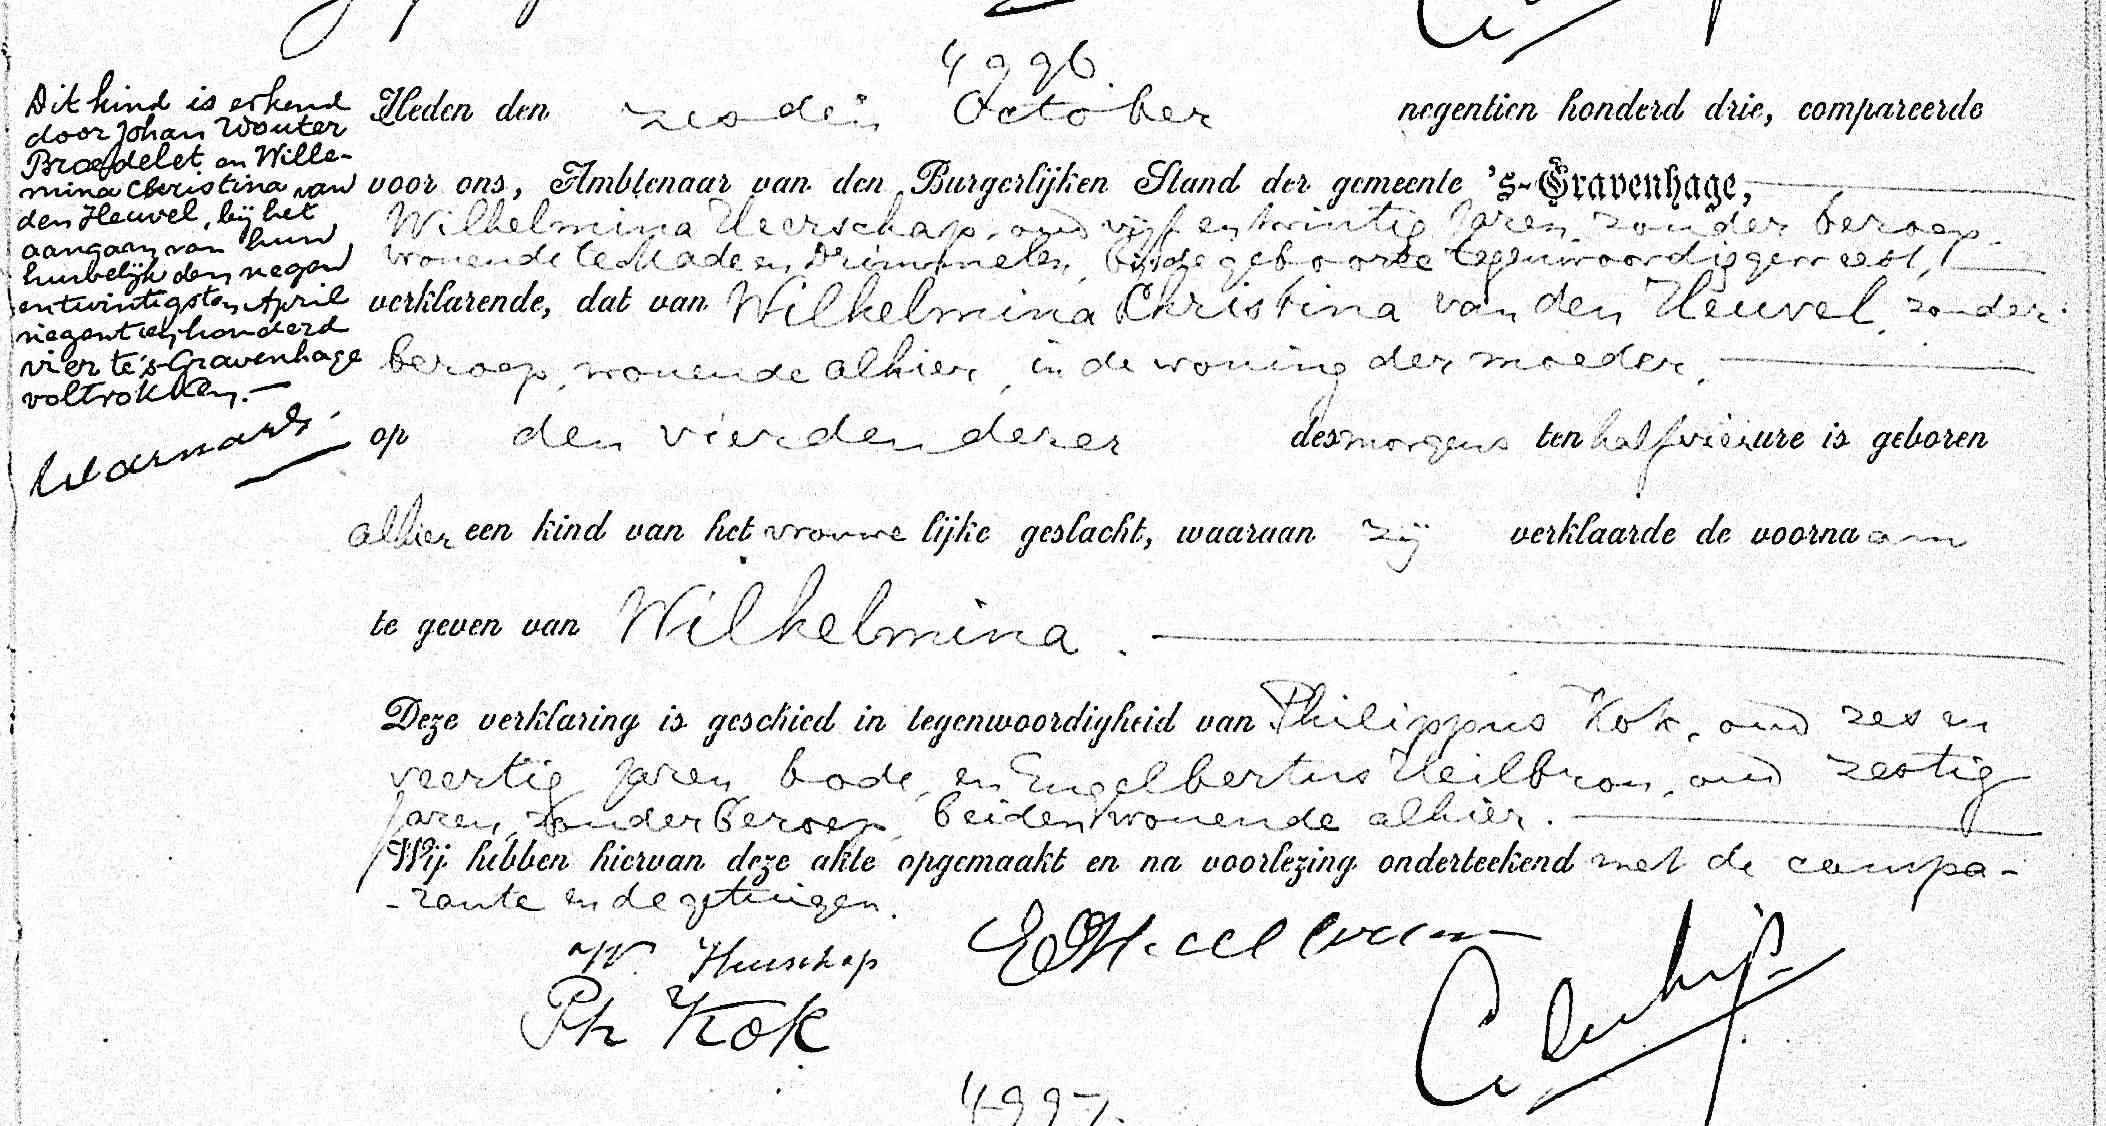 4996.
Dit kind is erkend
door Johan Wouter
Broedelet en Wille-
mina Christina van
den Heuvel, bij het
aangaan van hun
huwelijk den negen
entwintigsten April
negentienhonderd
vier te 's-Gravenhage
voltrokken.-
Heden den zesden October negentien honderd drie, compareerde
voor ons, Ambtenaar van den Burgerlijken Stand der gemeente 's-Gravenhage,
Wilhelmina Heerschap, oud vijf en twintig jaren, zonder beroep
wonende te Made en Drimmelen, bij de geboorte tegenwoordig geweest,
verklarende, dat van Wilhelmina Christina van den Heuvel, zonder
beroep, wonende alhier, in de woning der moeder,
op den vierden dezer des morgens ten half vier ure is geboren
alhier een kind van het vrouwelijke geslacht, waaraan zij verklaarde de voornaam
te geven van Wilhelmina.
Deze verklaring is geschied in tegenwoordigheid van Philippus Kok, oud zes en
veertig jaren, bode, en Engelbertus Heilbron, oud zestig
jaren, zonder beroep, beiden wonende alhier.
Wij hebben hiervan deze akte opgemaakt en na voorlezing onderteekend met de compa-
-rante en de getuigen.
W. Heerschap
Ph Kok
4997.